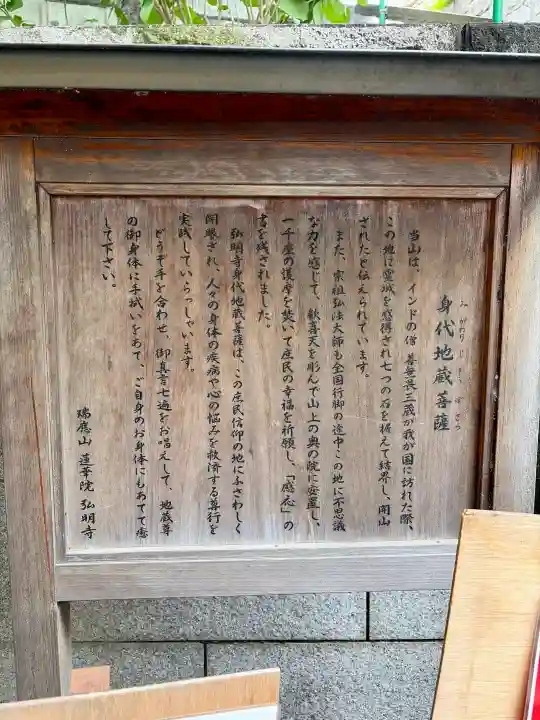 身代地蔵菩薩
みがわりじぞうぼさつ
当山は、インドの僧 善無畏三蔵が我が国に訪れた際、
この地に霊域を感得され七つの石を据えて結界し、開山
されたと伝えられています。
また、宗祖弘法大師も全国行脚の途中この地に不思議
な力を感じて、歓喜天を彫んで山上の奥の院に安置し、
一千座の護摩を焚いて庶民の幸福を祈願し、「應応」の
書を残されました。
弘明寺身代地蔵菩薩は、この庶民信仰の地にふさわしく
開眼され、人々の身体の疾病や心の悩みを救済する尊行を
実践していらっしゃいます。
どうぞ手を合わせ、御真言七遍をお唱えして、地蔵尊
の御身体に手拭いをあて、ご自身のお身体にもあてて癒
して下さい。
瑞應山 蓮華院 弘明寺